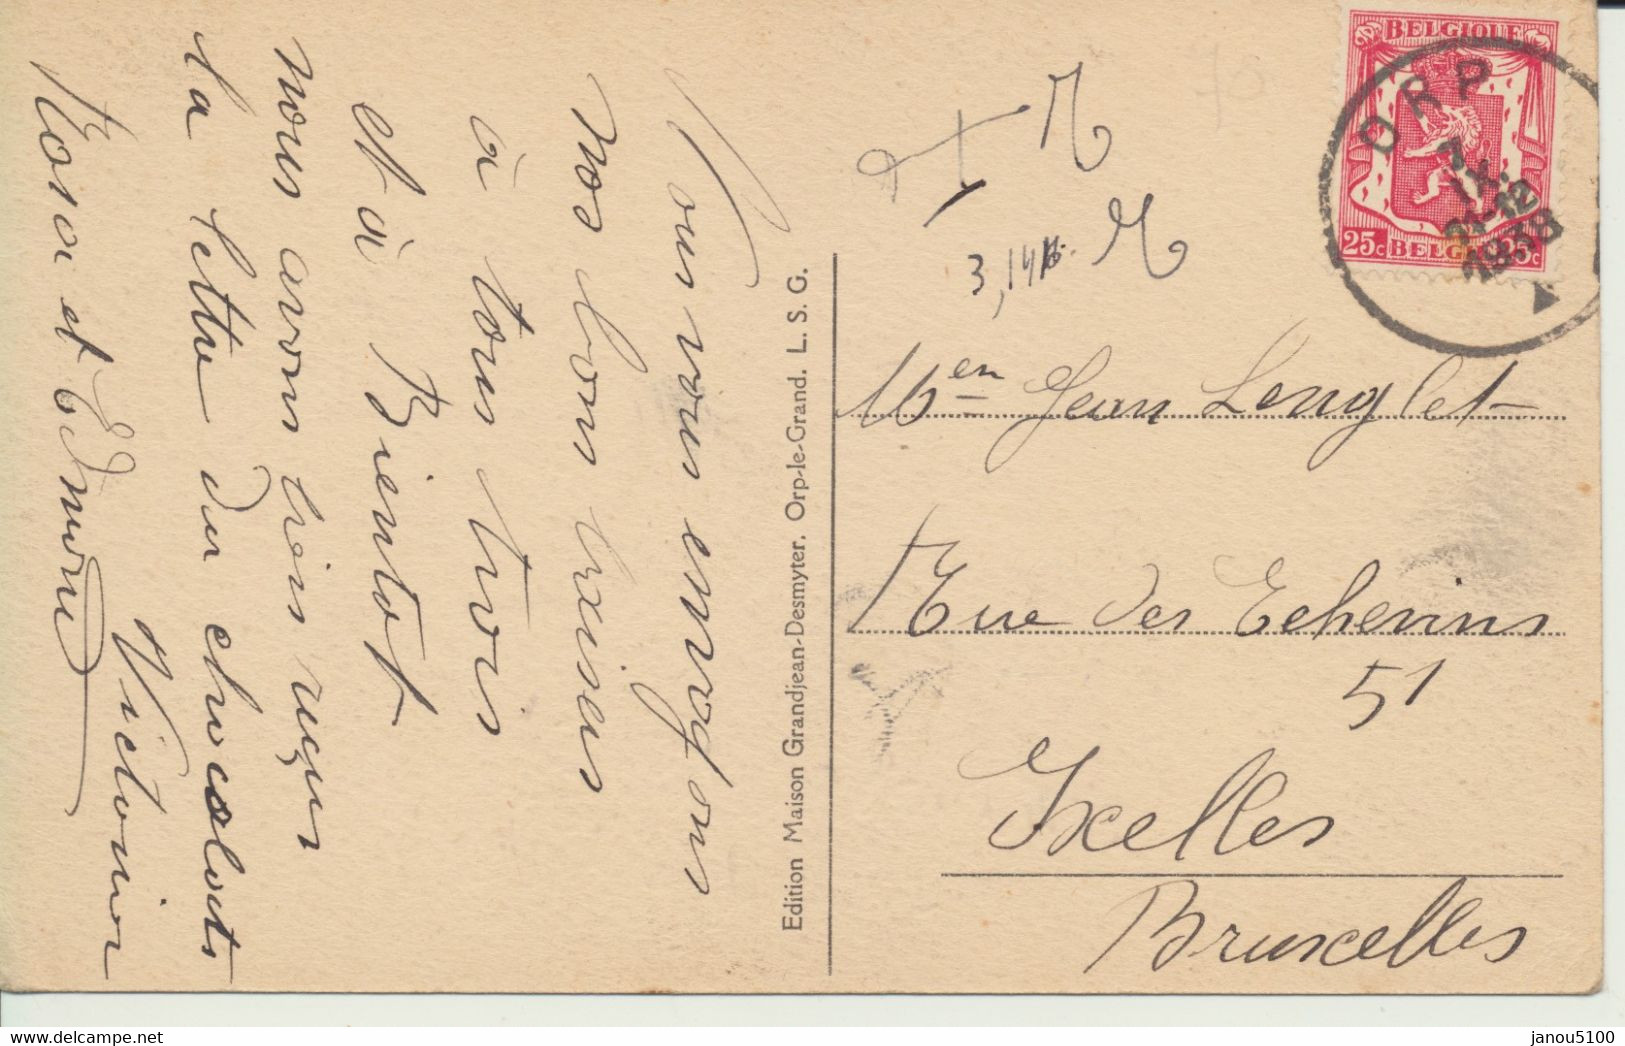 Nous vous envoyons
nos bons baisers
à tous trois
et à Bientot
nous avons bien reçus
la lettre du chocolats
Victorine
Rosa et Edmond
Edition Maison Grandjean-Desmyter. Orp-le-Grand. L. S. G.
BELGIQUE
25c BELGIË 25c
ORP
7
IX
11-12
1938
Men Jean Lenglet
Rue des Echevins
51
Ixelles
Bruxelles
delcampe.net
janou5100